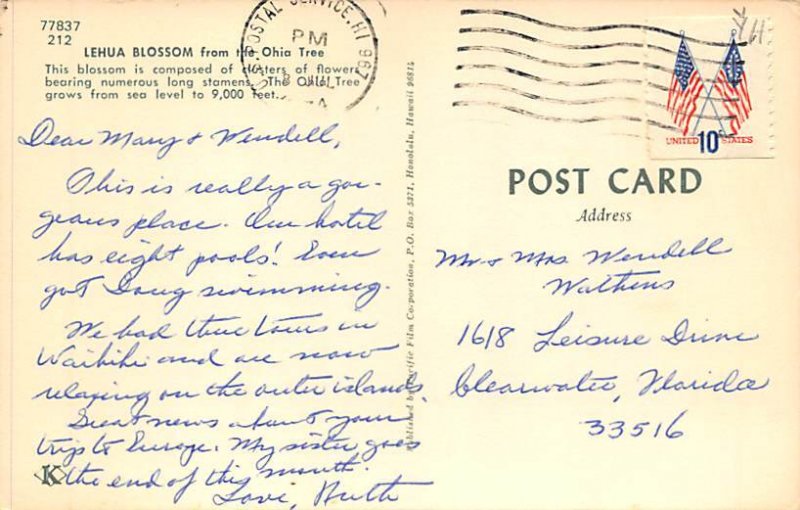 77837
212
LEHUA BLOSSOM from the Ohia Tree
This blossom is composed of clusters of flowers
bearing numerous long stamens. The Ohia Tree
grows from sea level to 9,000 feet.
POSTAL SERVICE, HI 967
PM
JUL
Dear Mary & Wendell,
This is really a gor-
geous place. Our hotel
has eight pools! Even
got Doug swimming.
We had three tours in
Waikiki and are now
relaxing on the outer islands.
Great news about your
trip to Europe. My sister goes
the end of this month.
Love, Ruth
K
Published by Pacific Film Corporation, P.O. Box 5371, Honolulu, Hawaii 96814
UNITED 10c STATES
POST CARD
Address
Mr & Mrs. Wendell
Wathens
1618 Leisure Drive
Clearwater, Florida
33516